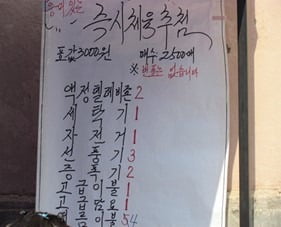 즉시체육추첨
표값3000원 매수 2500매
※ 빈표는 없습니다
액정텔레비죤 2
세탁기 1
자전거 1
선풍기 3
증폭기 2
고급이불 1
고급담요 1
54